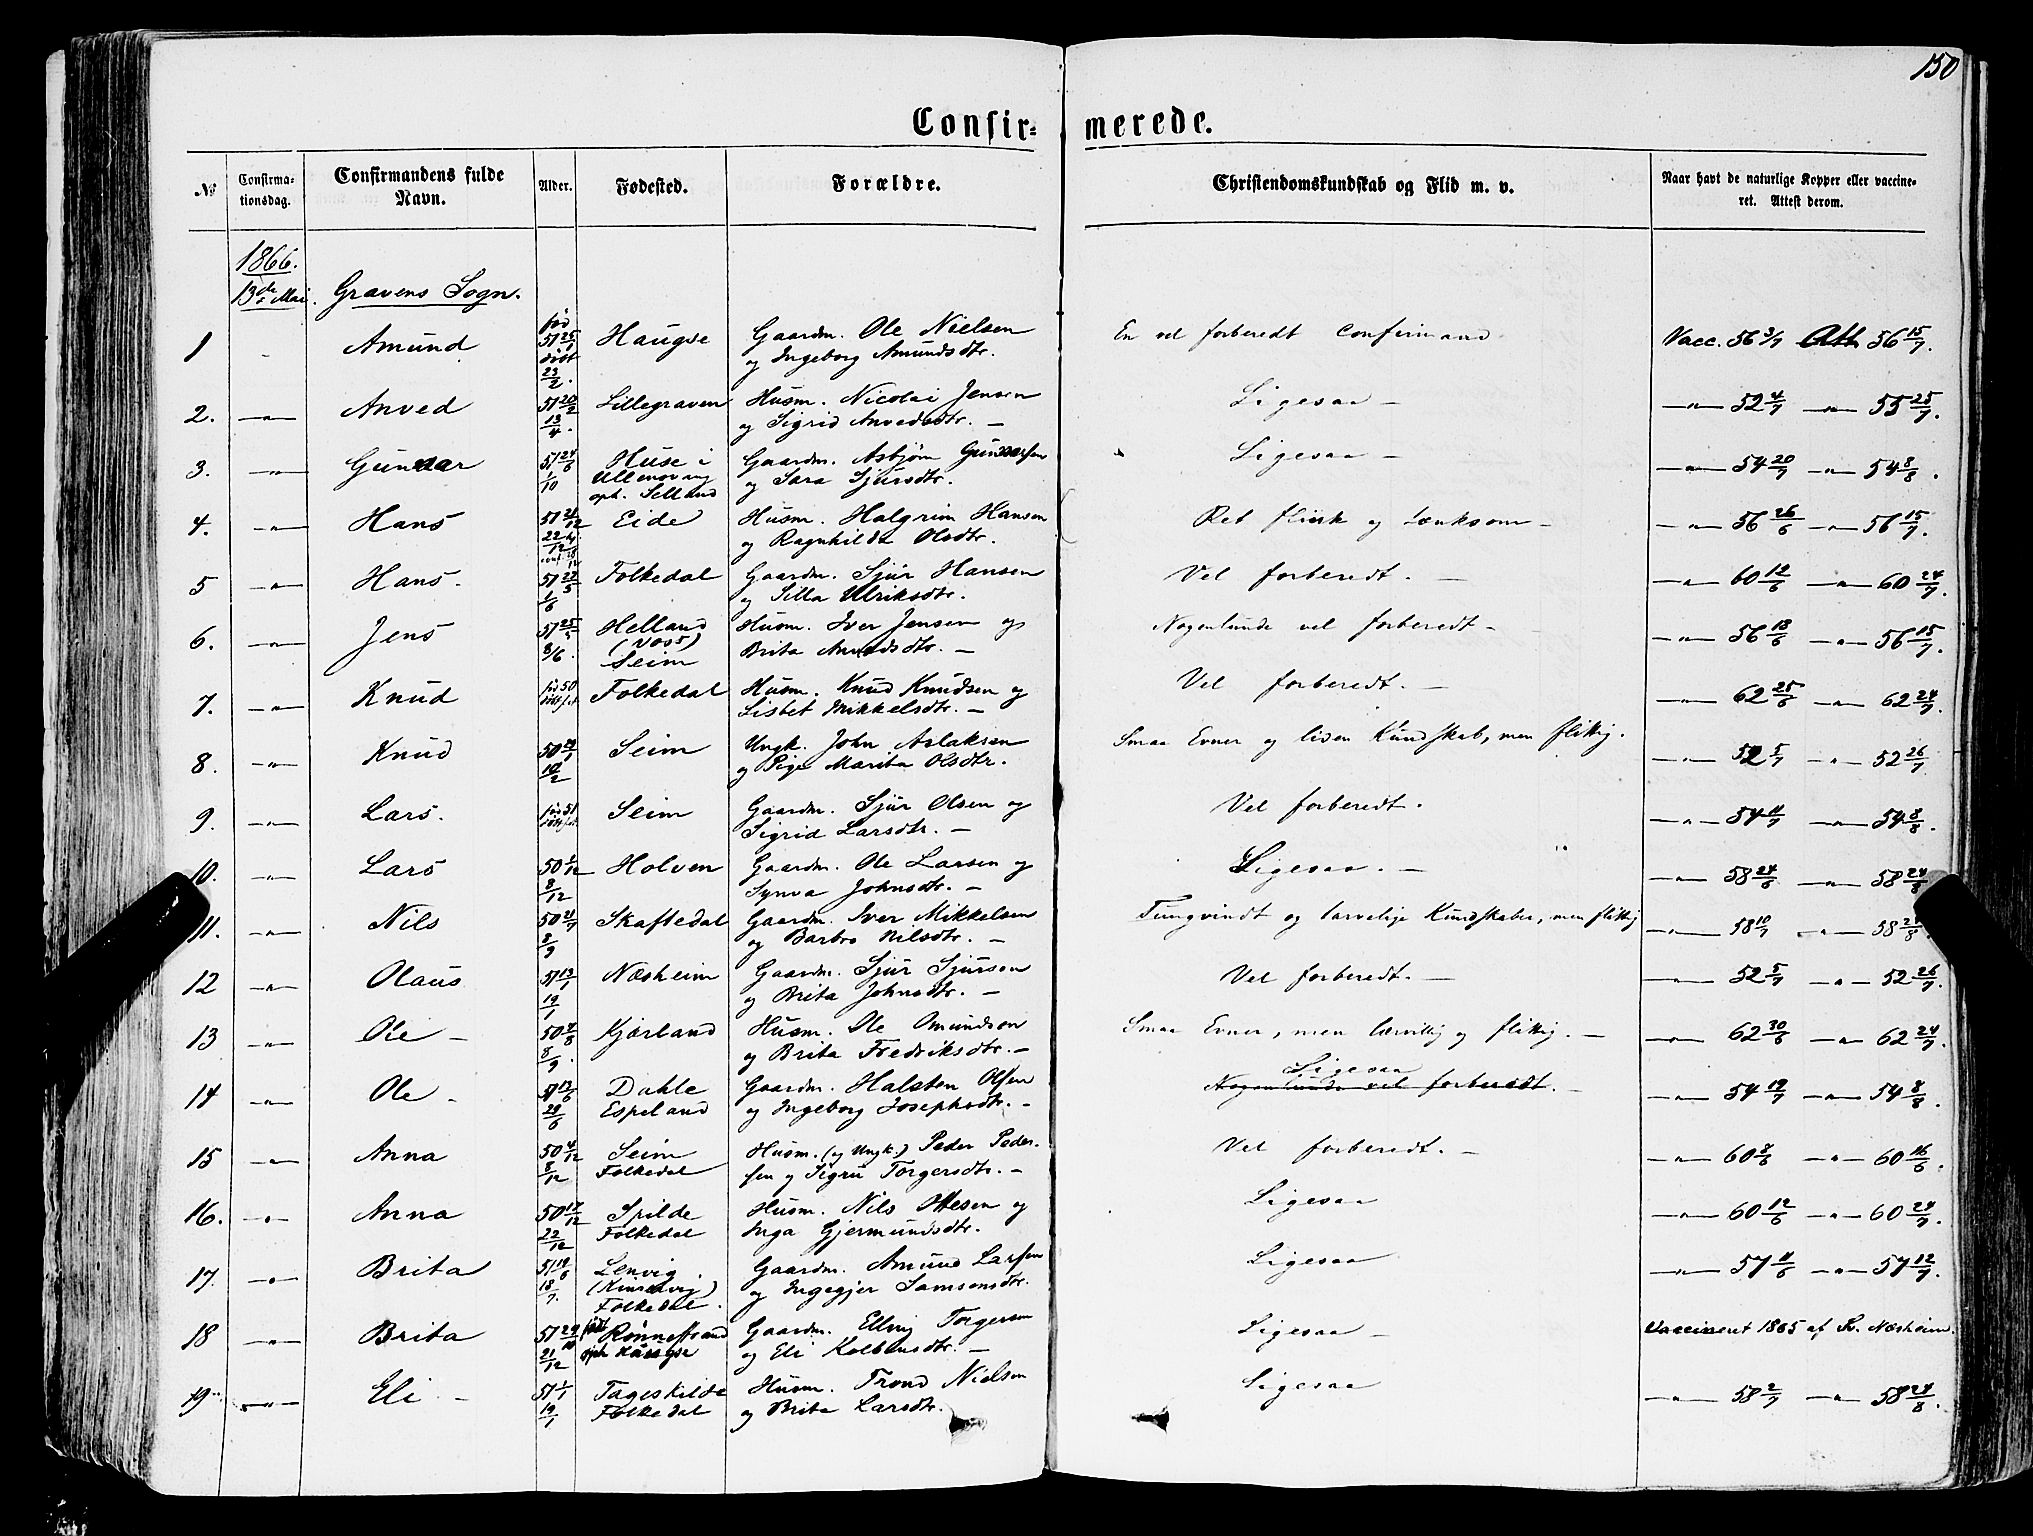 150
Confir= merede.
№ Confirma-tionsdag. Confirmandens fulde Navn. Alder. Fødested. Forældre. Christendomskundskab og Flid m. v. Naar havt de naturlige Kopper eller vaccine-ret. Attest derom.
1866.
13de Mai. Gravens Sogn.
1 Amund fød 51 25/1 døbt 23/2. Haugse Gaardm. Ole Nielsen
og Ingeborg Amundsdtr. En vel forberedt Confirmand. Vacc. 56 3/7 Att. 56 15/7.
2. —"— Anved 51 20/2 13/4. Lillegraven Husm. Nicolai Jensen
og Sigrid Anvedsdtr. — Ligesaa — —"— 52 4/7 —"— 55 25/7.
3. —"— Gunnar 51 24/6 1/10 Huse i
Ullensvang
oph. Selland Gaardm. Asbjørn Gunnarsen
og Sara Sjursdtr. Ligesaa — —"— 54 20/7 —"— 54 8/8.
4. —"— Hans 51 22/12 Eide Husm. Halgrim Hansen
og Ragnhilda Olsdtr. Ret flink og tænksom — —"— 56 26/6 —"— 56 15/7.
5 —"— Hans. 51 22/5 1/6 Folkedal Gaardm. Sjur Hansen
og Silla Ulriksdtr. Vel forberedt. — —"— 60 12/6 —"— 60 24/7.
6. —"— Jens 51 25/5 8/6. Helland
(Voss)
Seim Husm. Iver Jensen og
Brita Anvedsdtr. — Nogenlunde vel forberedt — —"— 56 18/6 —"— 56 15/7.
7. —"— Knud fød 50 Folkedal Husm. Knud Knudsen og
Lisbet Mikkelsdtr. — Vel forberedt. — —"— 62 25/6 —"— 62 24/7.
8. —"— Knud 50 10/2 Seim Ungk. John Aslaksen
og Pige Marita Olsdtr. Smaa Evner og liden Kundskab, men flittig. —"— 52 5/7 —"— 52 26/7
9. —"— Lars. fød 51 Seim Gaardm. Sjur Olsen og
Sigrid Larsdtr. — Vel forberedt. —"— 54 11/7 —"— 54 8/8.
10. —"— Lars 50 2/12 8/12 Holven Gaardm. Ole Larsen og
Synva Johnsdtr. — Ligesaa. — —"— 58 24/6 —"— 58
11. —"— Nils 50 21/7 8/9 Skaftedal Gaardm. Iver Mikkelsen
og Barbro Nilsdtr. — Tungvindt og tarvelige Kundskaber, men flittig —"— 58 10/7 —"— 58
12 —"— Olaus 51 13/1 19/1 Næsheim Gaardm. Sjur Sjursen
og Brita Johnsdtr. — Vel forberedt. — —"— 52 5/7 —"— 52 26/7.
13 —"— Ole — 50 8/9. Kjærland Husm. Ole Omundson
og Brita Fredriksdtr. — Smaa Evner, men lærvillig og flittig. — —"— 62 30/6 —"— 62 24/7.
14 —"— Ole — 51 13/6 29/6 Dahle
Espeland Gaardm. Halsten Olsen
og Ingeborg Josephsdtr. — Ligesaa
Nogenlunde vel forberedt. — —"— 54 19/7 —"— 54 8/8.
15 —"— Anna 50 4/12 8/12 Seim
Folkedal Husm. (og Ungk.) Peder Peder-
sen og Sigru Torgersdtr. — Vel forberedt. — —"— 60 8/6 —"— 60 16/6.
16. —"— Anna 50 17/12 22/12 Spilde
Folkedal Husm. Nils Ottesen og
Inga Gjermundsdtr. Ligesaa —"— 60 12/6 —"— 60 24/7.
17. —"— Brita 51 14/6 18/7. Lenvig
(Kinservig)
Folkedal. Gaardm. Amund Larsen
og Ingegjer Samsonsdtr. Ligesaa —"— 57 11/6 —"— 57 12/7.
18 —"— Brita 51 21/12 født Rønnestrand
oph Haugse Gaardm. Elling Torgersen
og Eli Kolbensdtr. — Ligesaa — Vaccineret 1865 af K. Næsheim.
19 —"— Eli — 51 1/1 19/1 Tageskilde
Folkedal Husm. Trond Nielsen
og Brita Larsdtr. Ligesaa —"— 58 2/7 —"— 58 24/8.